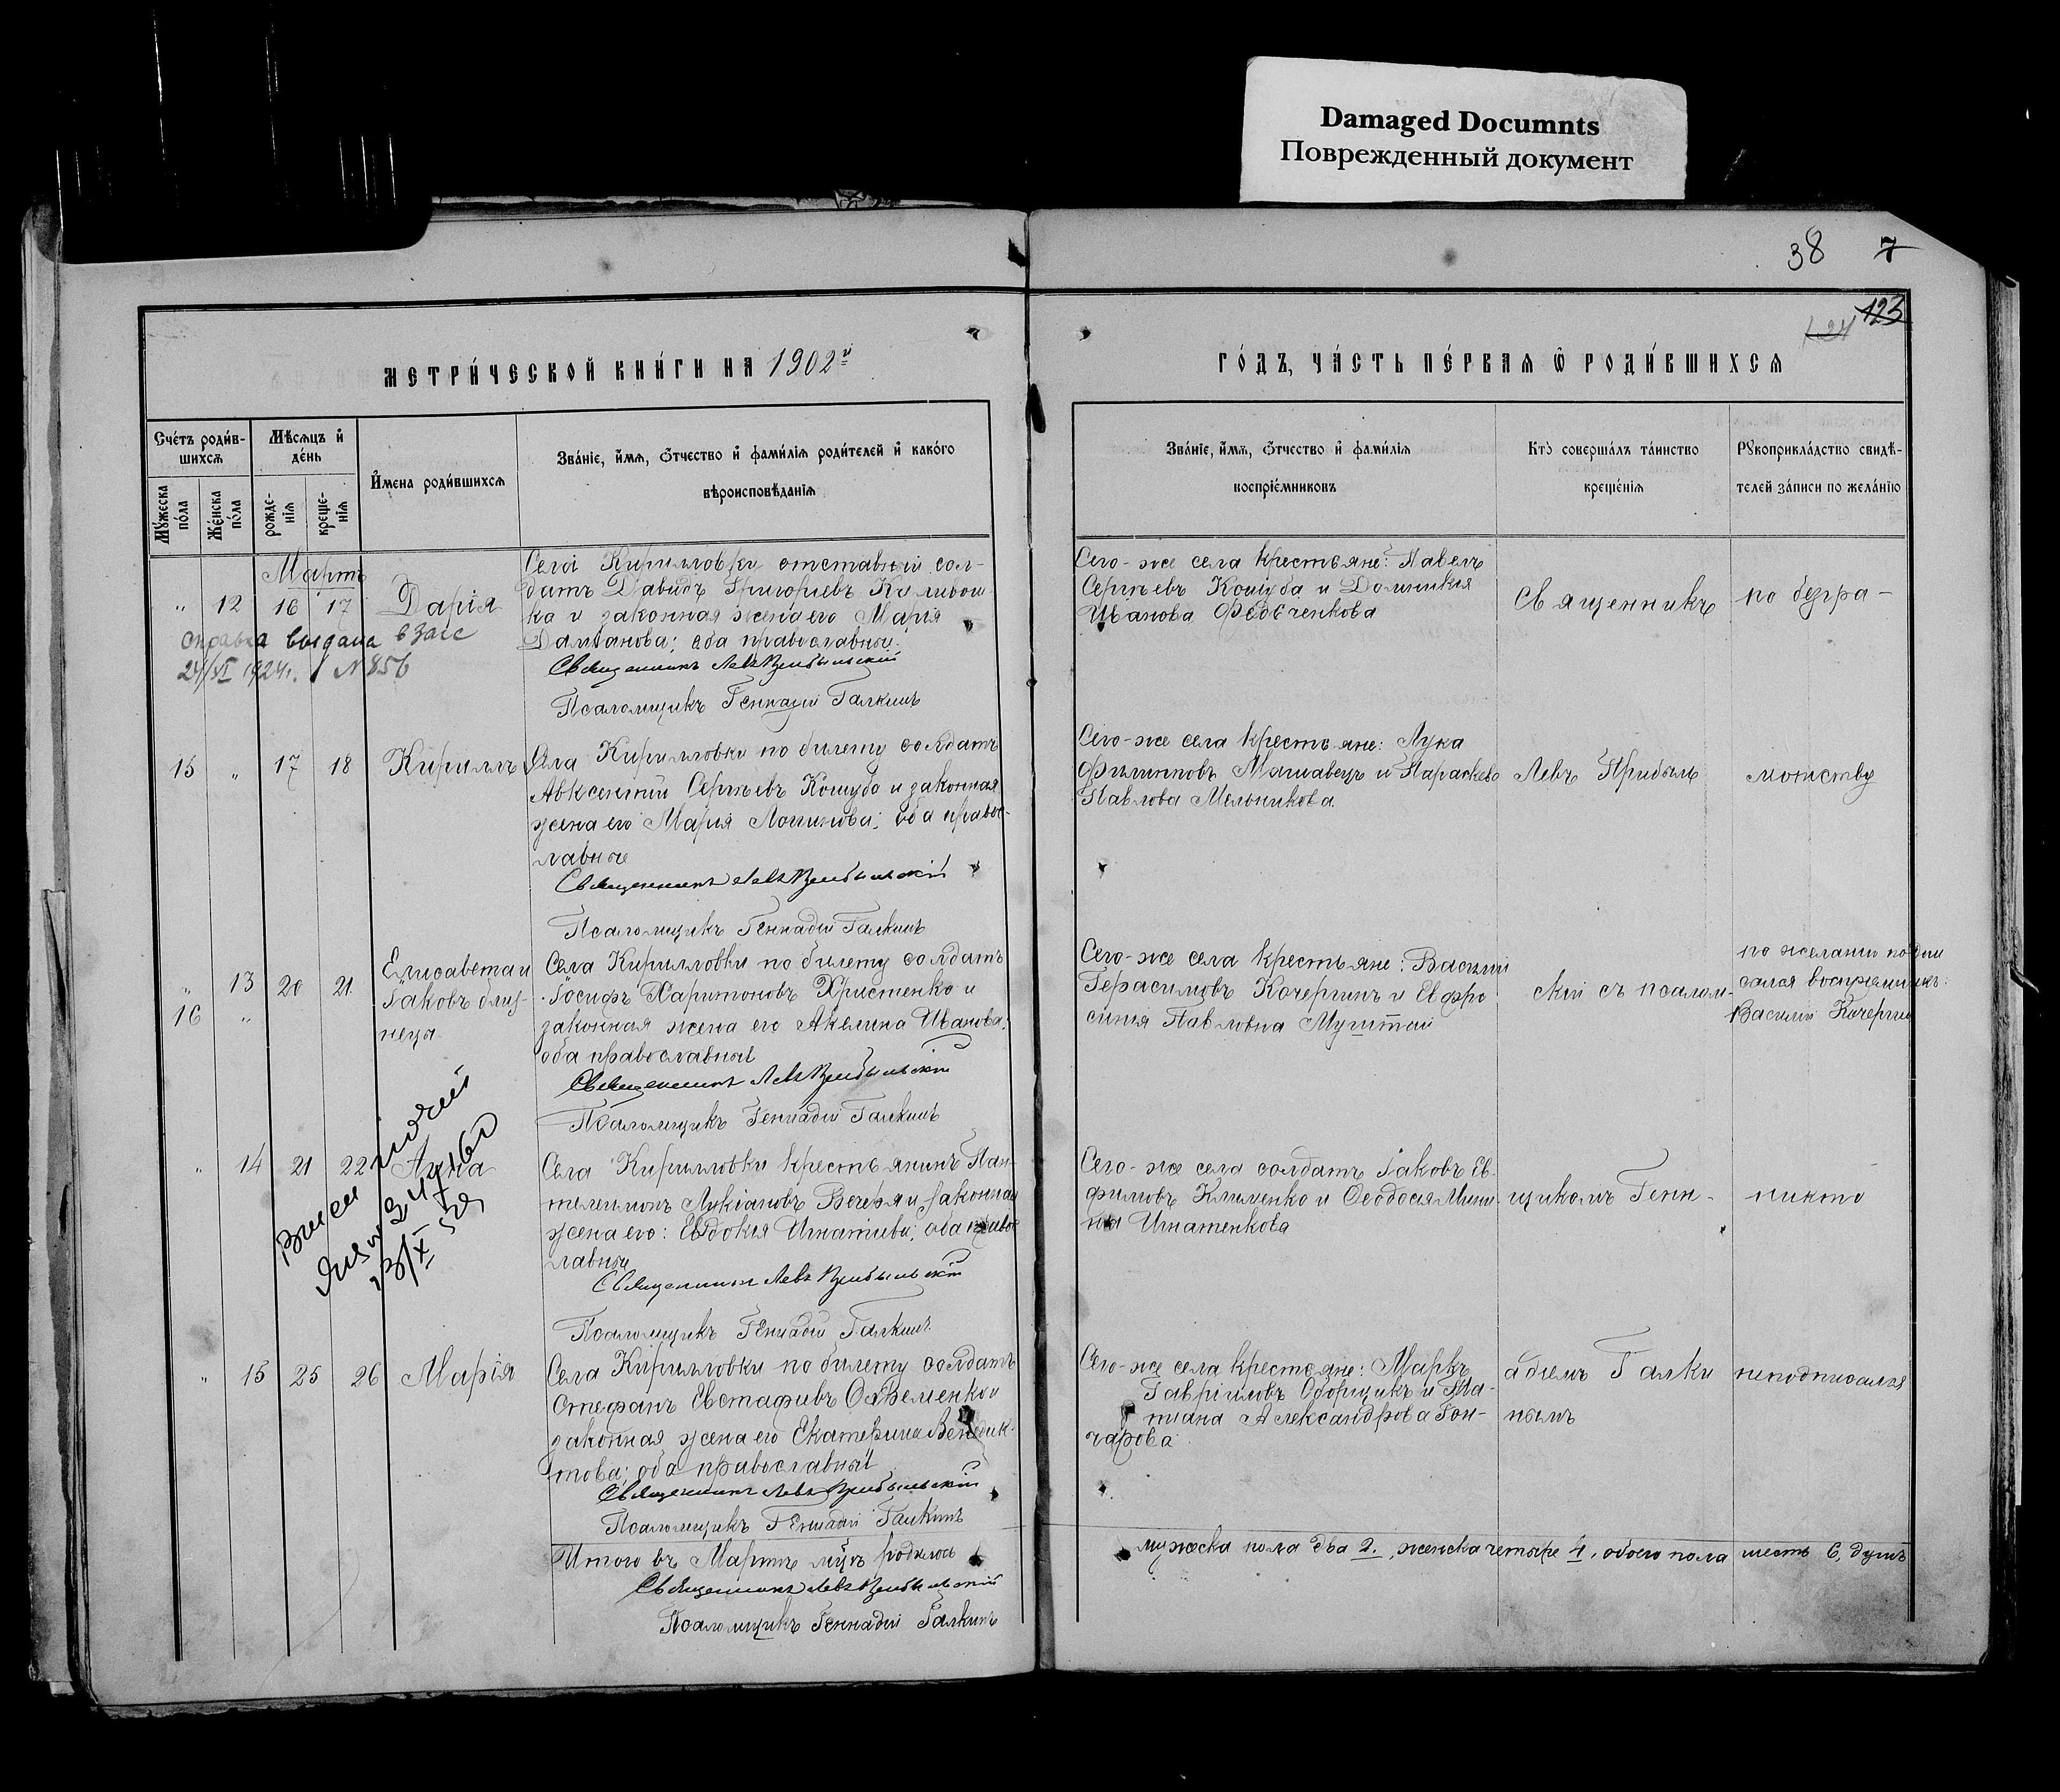 Damaged Documnts
Поврежденный документ
38 7
123
124
МЕТРИ́ЧЕСКОЙ КНИ́ГИ НА 1902й
ГО́ДЪ, ЧА́СТЬ ПЕ́РВАЯ Ѡ РОДИ́ВШИХСѦ
Сче́тъ роди́в-
шихсѧ
Мѣ́сѧцъ и҆
де́нь
И҆мена роди́вшихсѧ
Зва́нїе, и҆́мѧ, ѻ҆́тчество и҆ фами́лїѧ роди́телей и҆ како́гѡ
вѣроисповѣ́данїѧ
Му́жеска
по́ла
Же́нска
по́ла
рожде́-
нїѧ
креще́-
нїѧ
Зва́нїе, и҆́мѧ, ѻ҆́тчество и҆ фами́лїѧ
воспрїе́мниковъ
Кто̀ соверша́лъ та́инство
креще́нїѧ
Рꙋкоприкла́дство свидѣ́-
телей за́писи по жела́нїю
Мартъ
" 12 16 17 Дарія
Села Кирилловки отставный сол-
датъ Давидъ Григорьевъ Каливош
ка и законная жена его Марія
Дамианова; оба православные.
Священникъ Левъ Прибыльскій
Псаломщикъ Геннадій Галкинъ
справка выдана в Загс
24/XI 1924г. N 856
Сего-же села крестьяне: Павелъ
Сергѣевъ Кошуба и Домникія
Иванова Федченкова
Священникъ
по безгра-
15 " 17 18 Кириллъ
Села Кирилловки по билету солдатъ
Авксентій Сергѣевъ Кошуба и законная
жена его Марія Логинова; оба правос-
лавные
Священникъ Левъ Прибыльскій
Псаломщикъ Геннадій Галкинъ
Сего-же села крестьяне: Лука
Филипповъ Машавецъ и Параскева
Павлова Мельникова.
Левъ Прибыль
мотству
" 13 20 21
16 "
Елисавета и
Іаковъ близ-
нецы
Села Кирилловки по билету солдатъ
Іосифъ Харитоновъ Христенко и
законная жена его Акелина Иванова;
оба православные
Священникъ Левъ Прибыльскій
Псаломщикъ Геннадій Галкинъ
Сего-же села крестьяне: Василій
Герасимовъ Кочергинъ и Евфро
синія Павловна Муштай
скій съ псалом-
по желанію подпи
сался воспріемникъ:
Василій Кочергин
" 14 21 22 Анна
Села Кирилловки крестьянинъ Пан-
телеимонъ Лукіановъ Вечеря и законная
жена его: Евдокія Игнатіева; оба правос
лавные
Священникъ Левъ Прибыльскій
Псаломщикъ Геннадій Галкинъ
Сего-же села солдатъ Іаковъ Ев-
фимовъ Клименко и Ѳеодосія Мини
на Игнатенкова
щикомъ Генн-
никто
" 15 25 26 Марія
Села Кирилловки по билету солдатъ
Стефанъ Евстафіевъ Охременко и
законная жена его Екатерина Венедик-
това; оба православные
Священникъ Левъ Прибыльскій
Псаломщикъ Геннадій Галкинъ
Сего-же села крестьяне: Маркъ
Гавріиловъ Оборщикъ и Та-
тіана Александрова Гон-
чарова
адіемъ Галки
нымъ
неподписался
Итого въ Мартѣ мцѣ родилось
мужска пола два 2., женска четыре 4, обоего пола шесть 6, душъ
Священникъ Левъ Прибыльскій
Псаломщикъ Геннадій Галкинъ